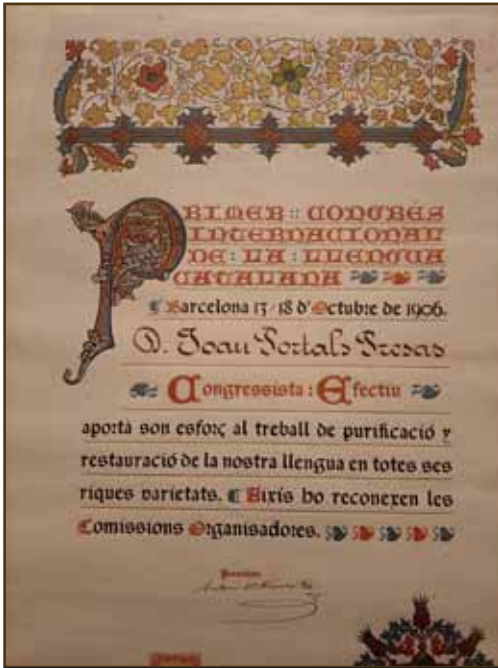 PRIMER :: CONGRÉS
INTERNACIONAL
DE : LA : LLENGUA
CATALANA
Barcelona 13/18 d'Octubre de 1906.
D. Joan Portals Presas
Congressista : Efectiu
aportà son esforç al treball de purificació y
restauració de la nostra llengua en totes ses
riques varietats. Aixís ho reconexen les
Comissions Organisadores.